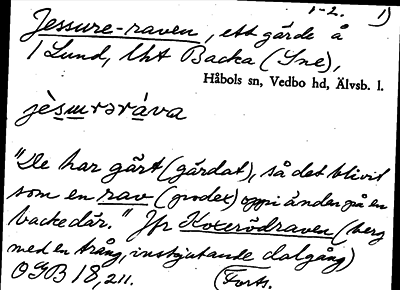 1-2. 1)
Jessure-raven, ett gärde å
1 Lund, lht Backa (Sne),
Håbols sn, Vedbo hd, Älvsb. l.
jèsurəráva
"De har gärt (gärdat), så det blivit
som en rav (podex) oppi änden på en
backe där." Jfr Koxerödraven (berg
med en trång, inskjutande dalgång)
OGB 18, 211. (Forts.